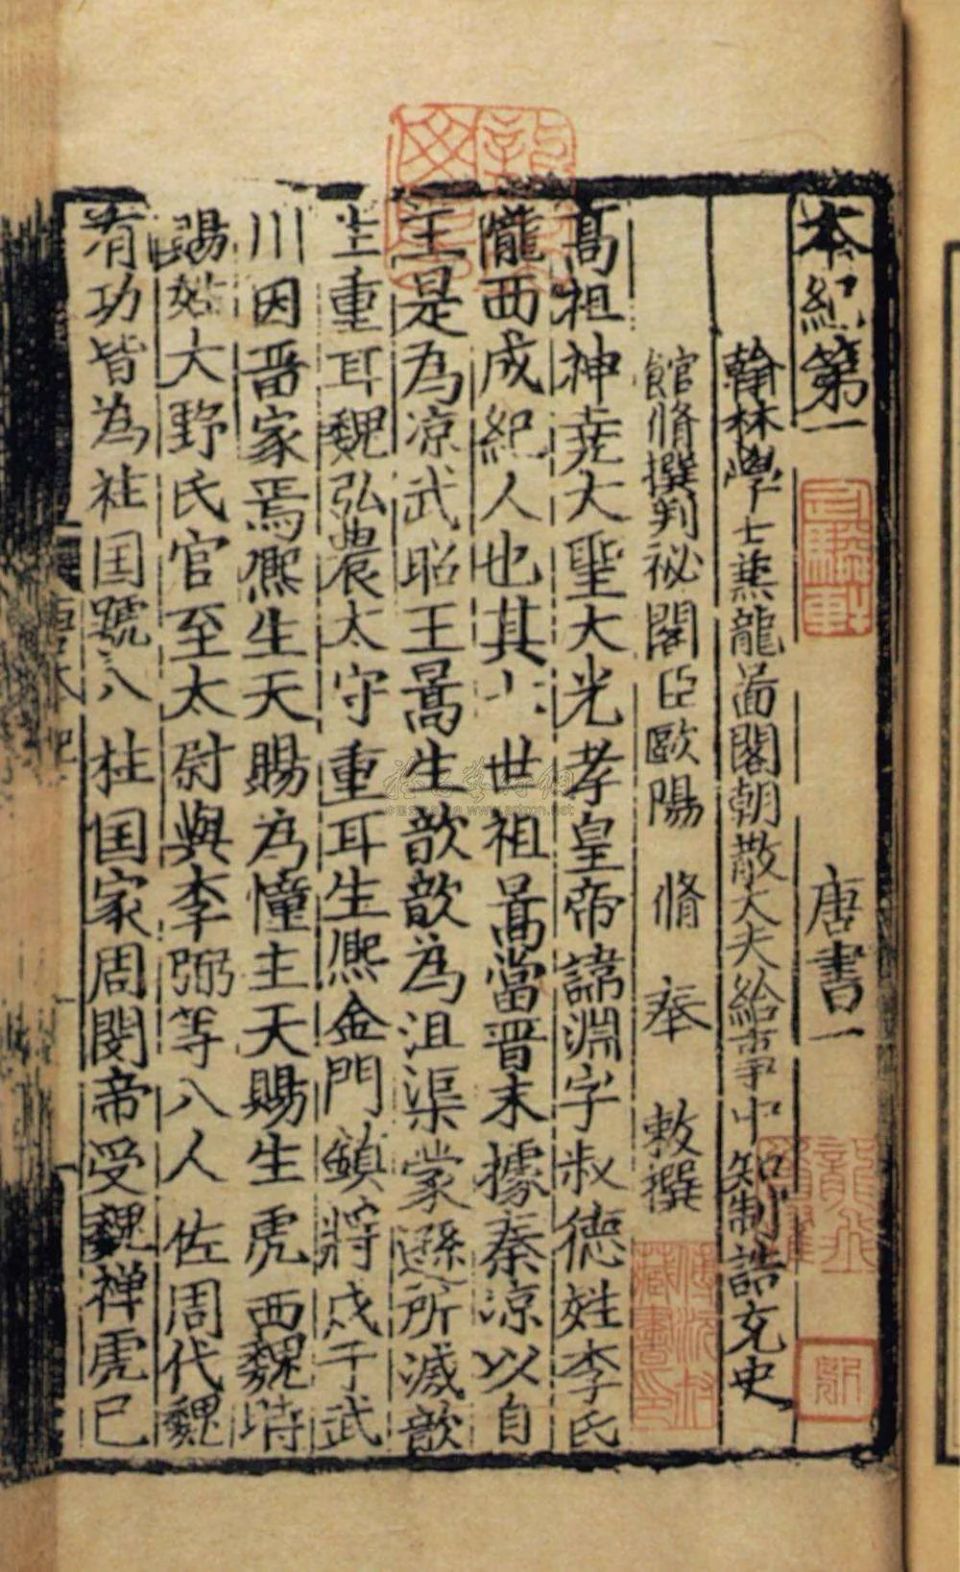 本紀第一 唐書一
翰林學士兼龍圖閣朝散大夫給事中知制誥充史
館脩撰判祕閣臣歐陽脩奉敕撰
高祖神堯大聖大光孝皇帝諱淵字叔德姓李氏
隴西成紀人也其七世祖暠當晉末據秦涼以自
王是為涼武昭王暠生歆歆為沮渠蒙遜所滅歆
生重耳魏弘農太守重耳生熈金門鎮將戍于武
川因畱家焉熈生天賜為幢主天賜生虎西魏時
賜姓大野氏官至太尉與李弼等八人佐周代魏
有功皆為柱国號八柱国家周閔帝受魏禪虎已